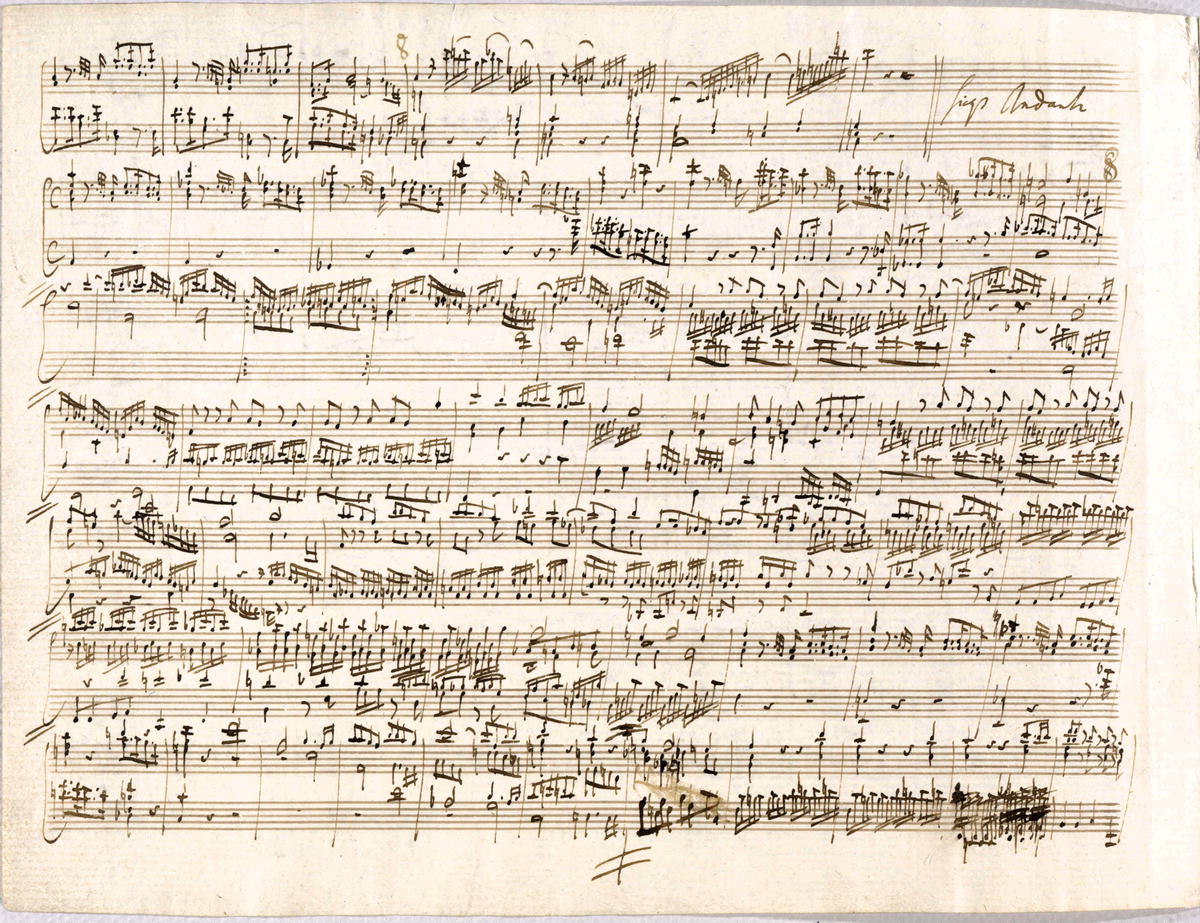 8
siegs Andante
8